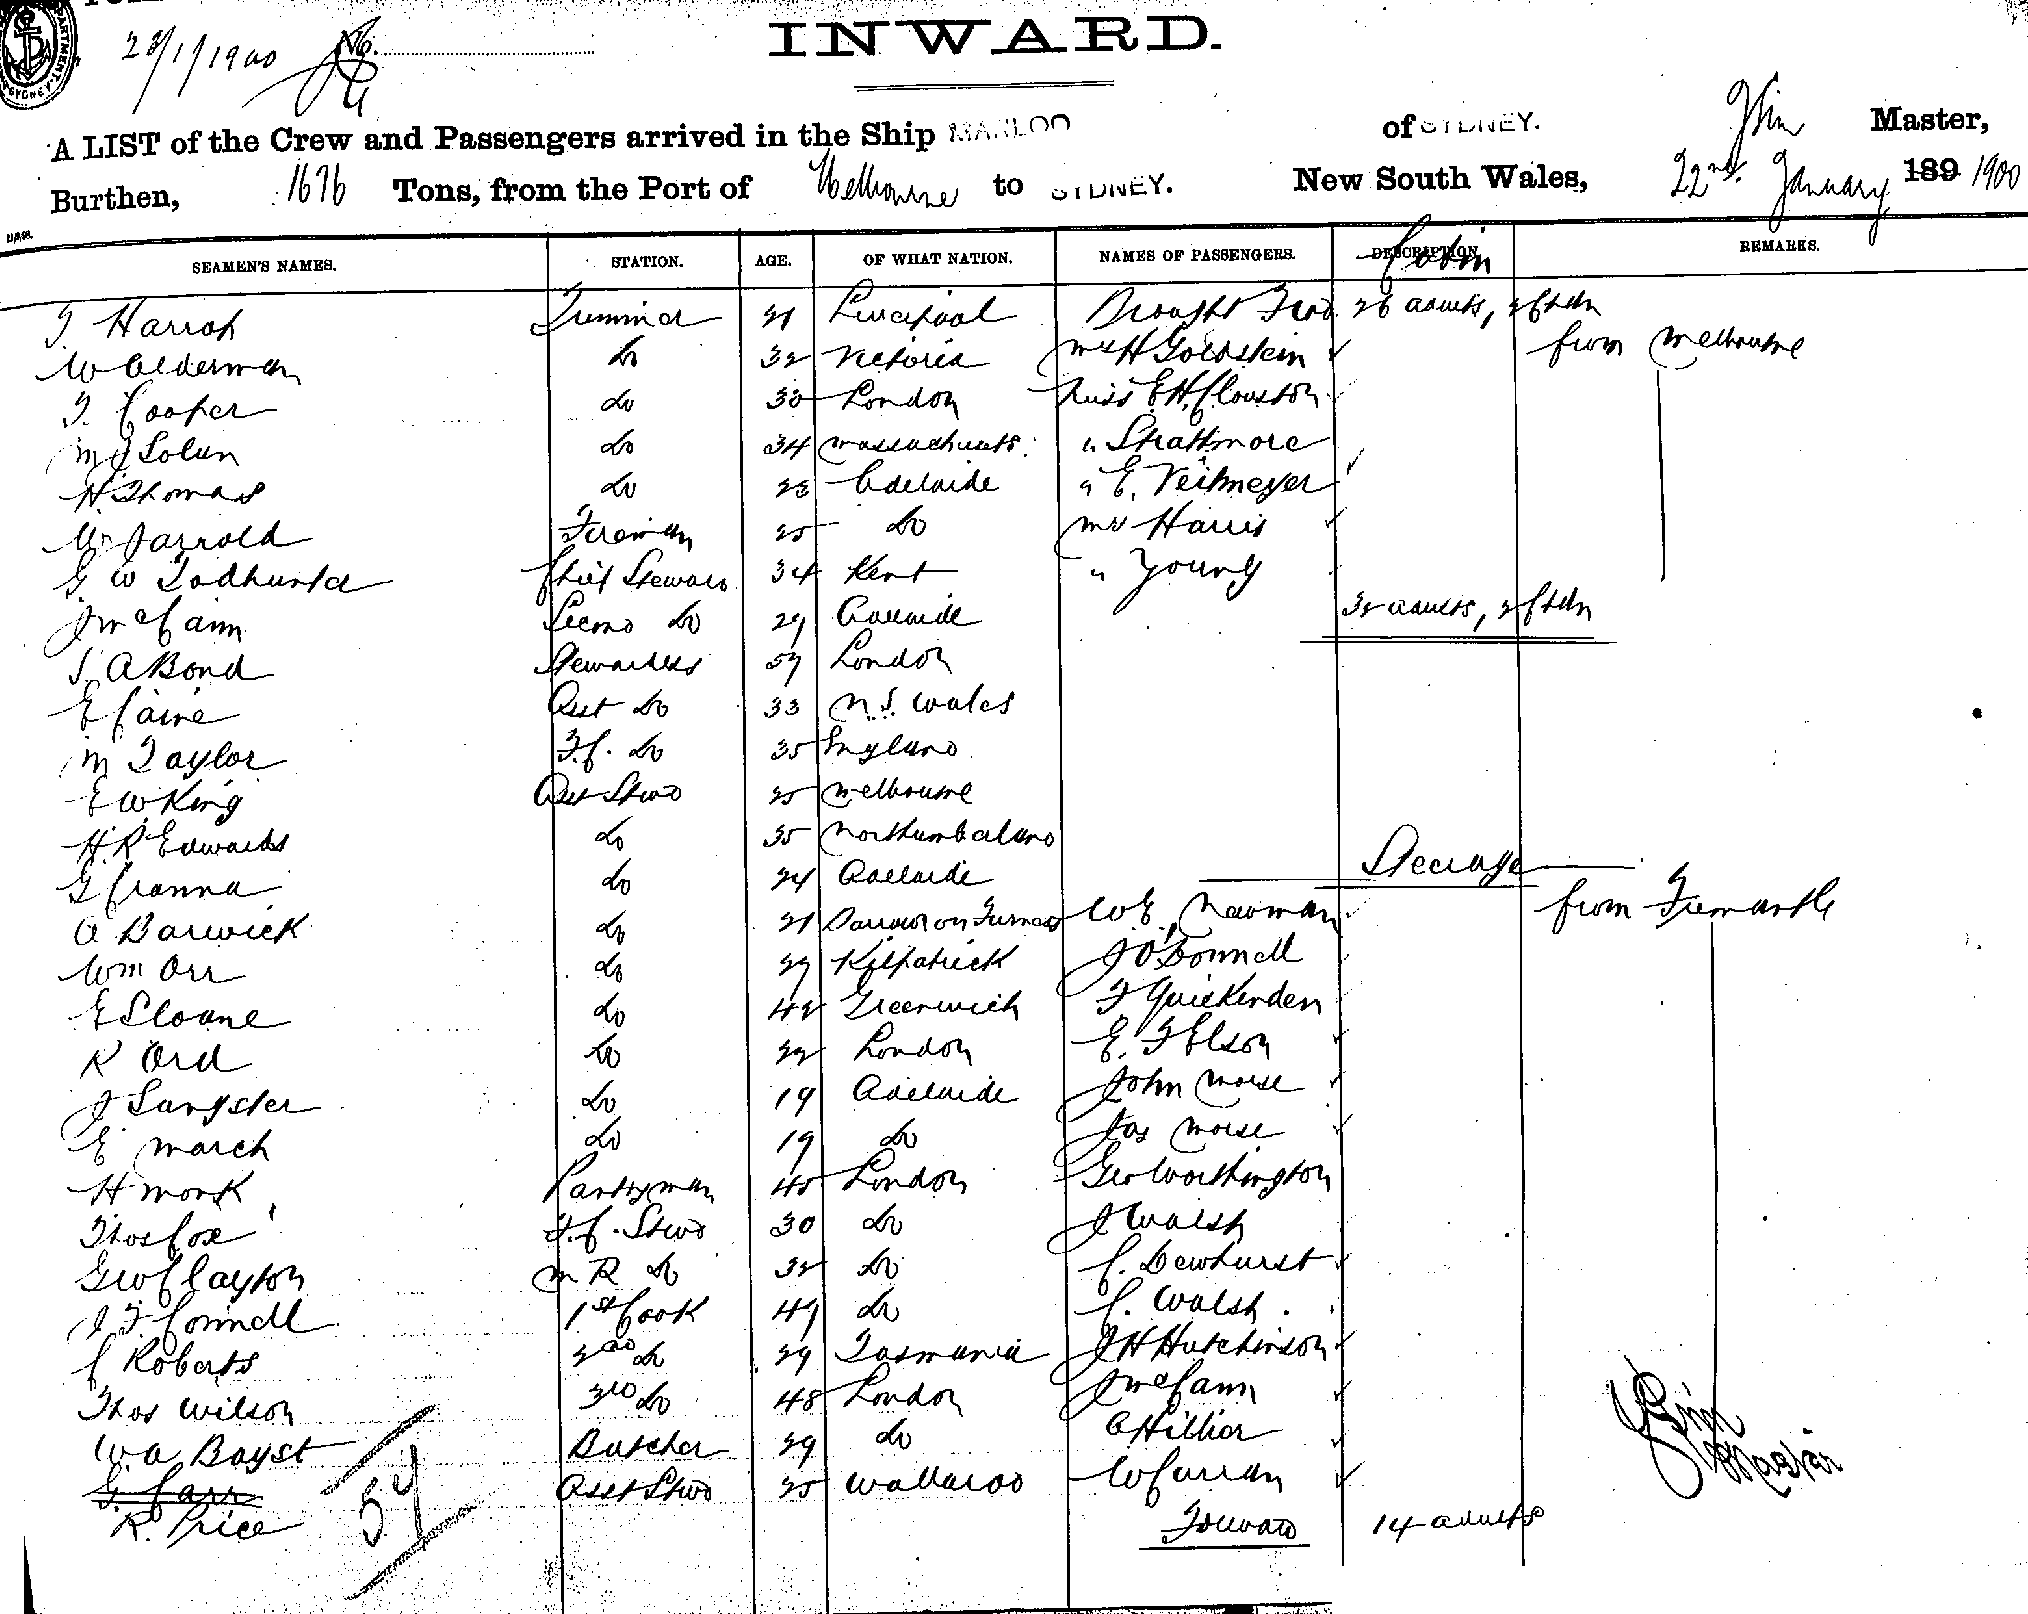 28/1/1900 No.
INWARD.
A LIST of the Crew and Passengers arrived in the Ship MARLOO of SYDNEY. Master,
Burthen, 1676 Tons, from the Port of Melbourne to SYDNEY. New South Wales, 22nd January 189 1900
SEAMEN'S NAMES. STATION. AGE. OF WHAT NATION. NAMES OF PASSENGERS. DESCRIPTION REMARKS.
Cabin
J Harrop Trimmer 21 Liverpool Brought Frwd 26 adults, 2 Chdn
W Alderman Do 32 Victoria Mrs H Goldstein from Melbourne
J. Cooper Do 30 London Miss E H Clouston
M J Dolan Do 34 Massachusets. " Strathmore
H. Thomas Do 23 Adelaide " E. Veitmeyer
W Jarrold Fireman 25 Do Mrs Harris
G W Todhunter Chief Steward 34 Kent " Young
J McCann Second Do 29 Adelaide 32 adults, 2 Chdn
S. A Bond Stewardess 57 London
E Caire Asst Do 33 N. S. Wales
M Taylor F.C. Do 35 England
E W King Asst Stwd 25 Melbourne
H. R Edwards Do 35 Northumberland
G Cranna Do 24 Adelaide Steerage
A Barwick Do 21 Barrow on Furness W. E. Newman from Fremantle
Wm Orr Do 27 Kilpatrick J O'Donnell
E Sloane Do 42 Greenwich F Quickenden
R Ord Do 22 London E. F Elson
J Sangster Do 19 Adelaide John Morse
E March Do 19 Do Jas Morse
H Monk Pantryman 45 London Geo Worthington
Thos Cox F.C. Stwd 30 Do J Walsh
G W Clayton M R Do 32 Do C. Dewhurst
J F Connell 1st Cook 49 Do C. Walsh
C Roberts 2nd Do 29 Tasmania J H Hutchinson
Thos Wilson 3rd Do 48 London J McCann
W A Bayst Butcher 29 Do A Hillier
G. Carr Asst Stwd 25 Wallaroo W Curran
R. Price Forward 14 adults
54
Master